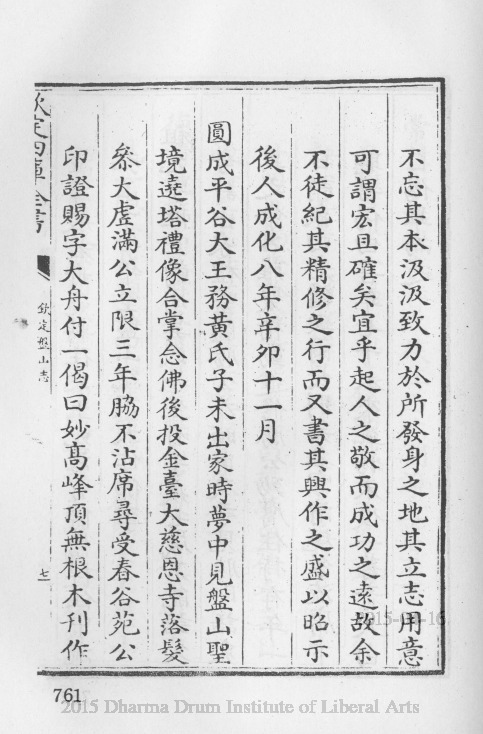 不忘其本汲汲致力於所發身之地其立志用意
可謂宏且確矣宜乎起人之敬而成功之遠故余
不徒紀其精修之行而又書其興作之盛以昭示
後人成化八年辛卯十一月
圓成平谷大王務黄氏子未出家時夢中見盤山聖
境遶塔禮像合掌念佛後投金臺大慈恩寺落髮
叅大虛滿公立限三年脇不沾席尋受春谷苑公
印證賜字大舟付一偈曰妙髙峰頂無根木刋作
欽定四庫全書
欽定盤山志
七二
761
2015 Dharma Drum Institute of Liberal Arts